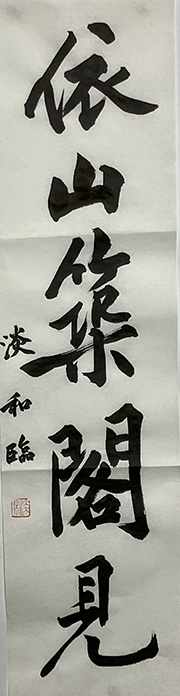 依山築閣見
淡和臨